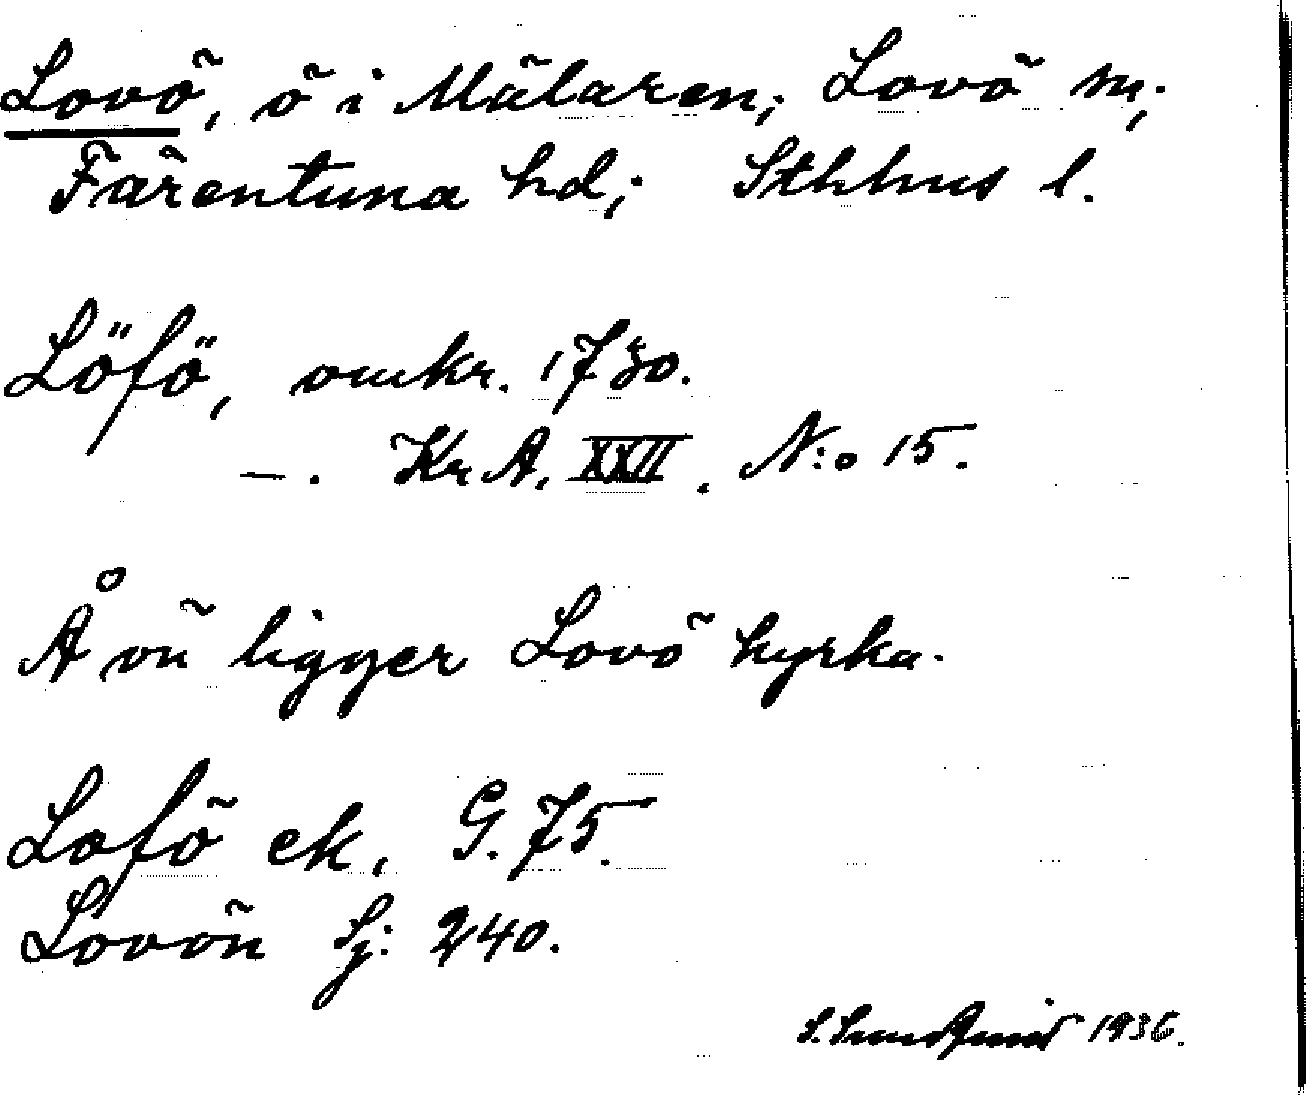 Lovö, ö i Mälaren; Lovö sn;
Färentuna hd; Sthlms l.
Löfö, omkr. 1730.
—. Kr A. XXII. N:o 15.
Å ön ligger Lovö kyrka.
Lofö ek, G. 75.
Lovön Sj: 240.
S. 1936.